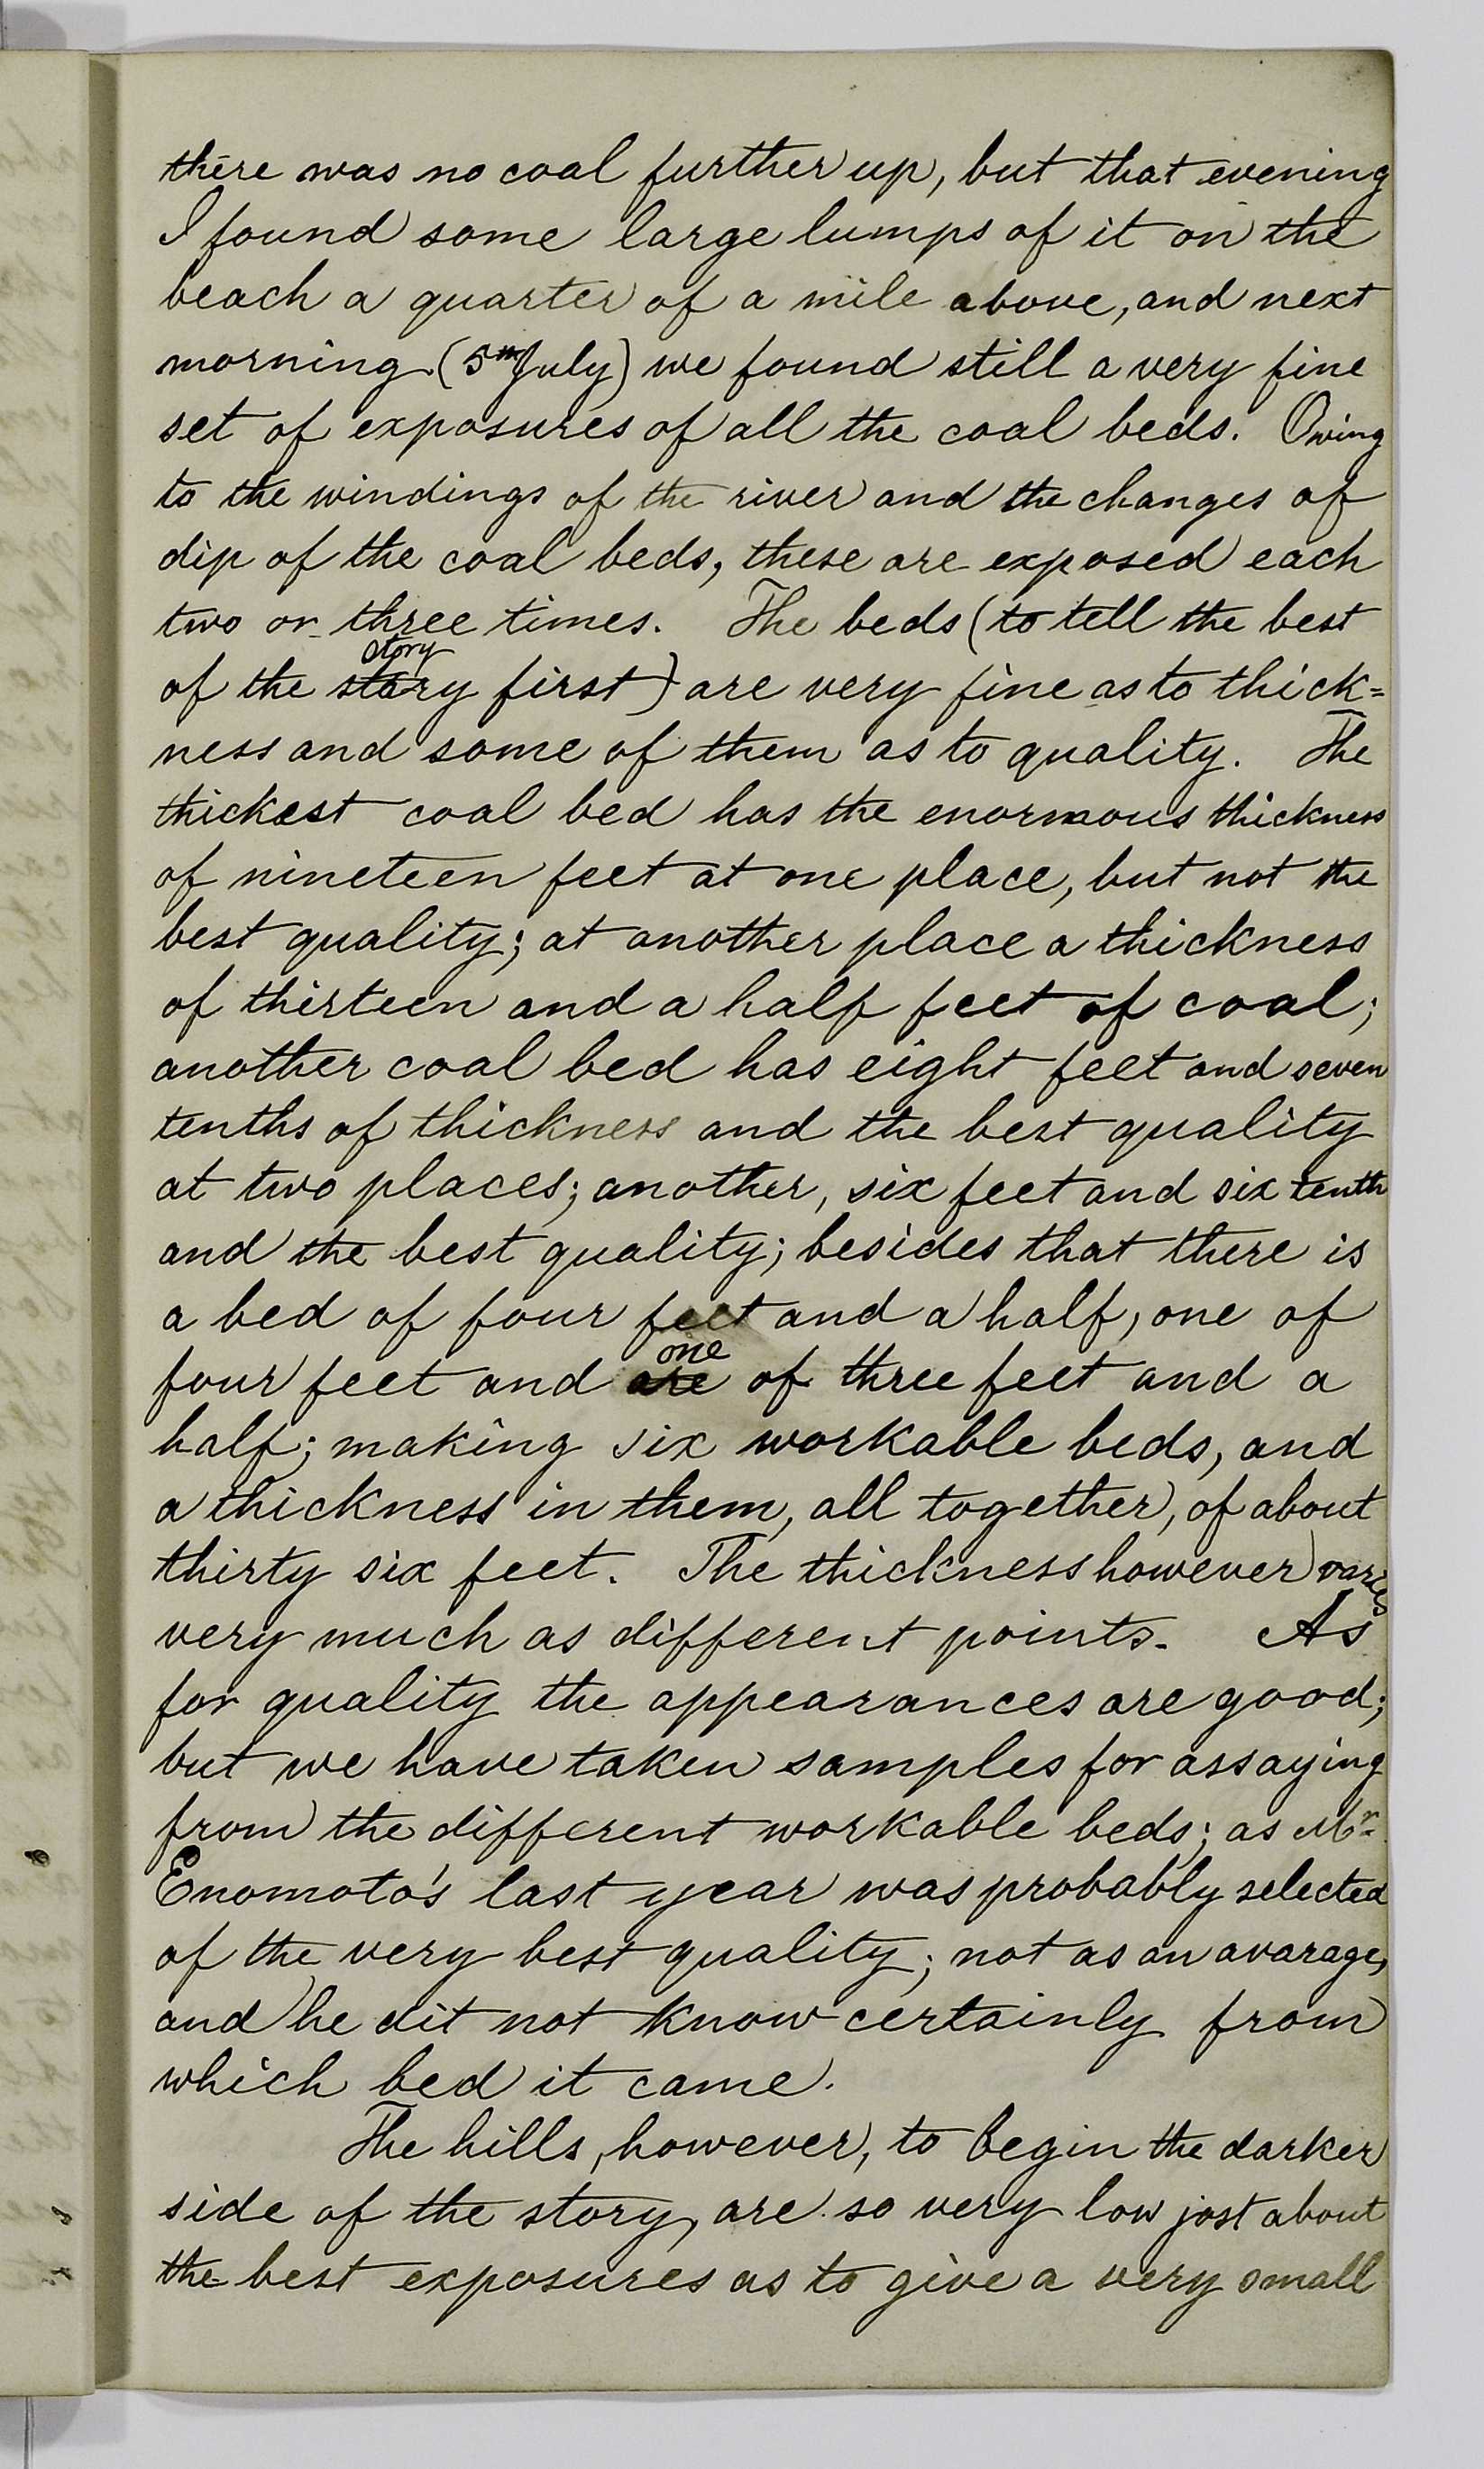 there was no coal further up, but that evening
I found some large lumps of it on the
beach a quarter of a mile above, and next
morning (5th July) we found still a very fine
set of exposures of all the coal beds. Owing
to the windings of the river and the changes of
dip of the coal beds, these are exposed each
two or three times. The beds (to tell the best
story
of the stary first) are very fine as to thick=
ness and some of them as to quality. The
thickest coal bed has the enormous thickness
of nineteen feet at one place, but not the
best quality; at another place a thickness
of thirteen and a half feet of coal;
another coal bed has eight feet and seven
tenths of thickness and the best quality
at two places; another, six feet and six tenth
and the best quality; besides that there is
a bed of four feet and a half, one of
one
four feet and are of three feet and a
half; making six workable beds, and
a thickness in them, all together, of about
thirty six feet. The thickness however varies
very much as different points. As
for quality the appearances are good;
but we have taken samples for assaying
from the different workable beds; as Mr
Enomoto's last year was probably selected
of the very best quality; not as an avarage,
and he dit not know certainly from
which bed it came.
The hills, however, to begin the darker
side of the story, are so very low jost about
the best exposures as to give a very small